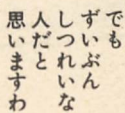 でも
ずいぶん
しつれいな
人だと
思いますわ